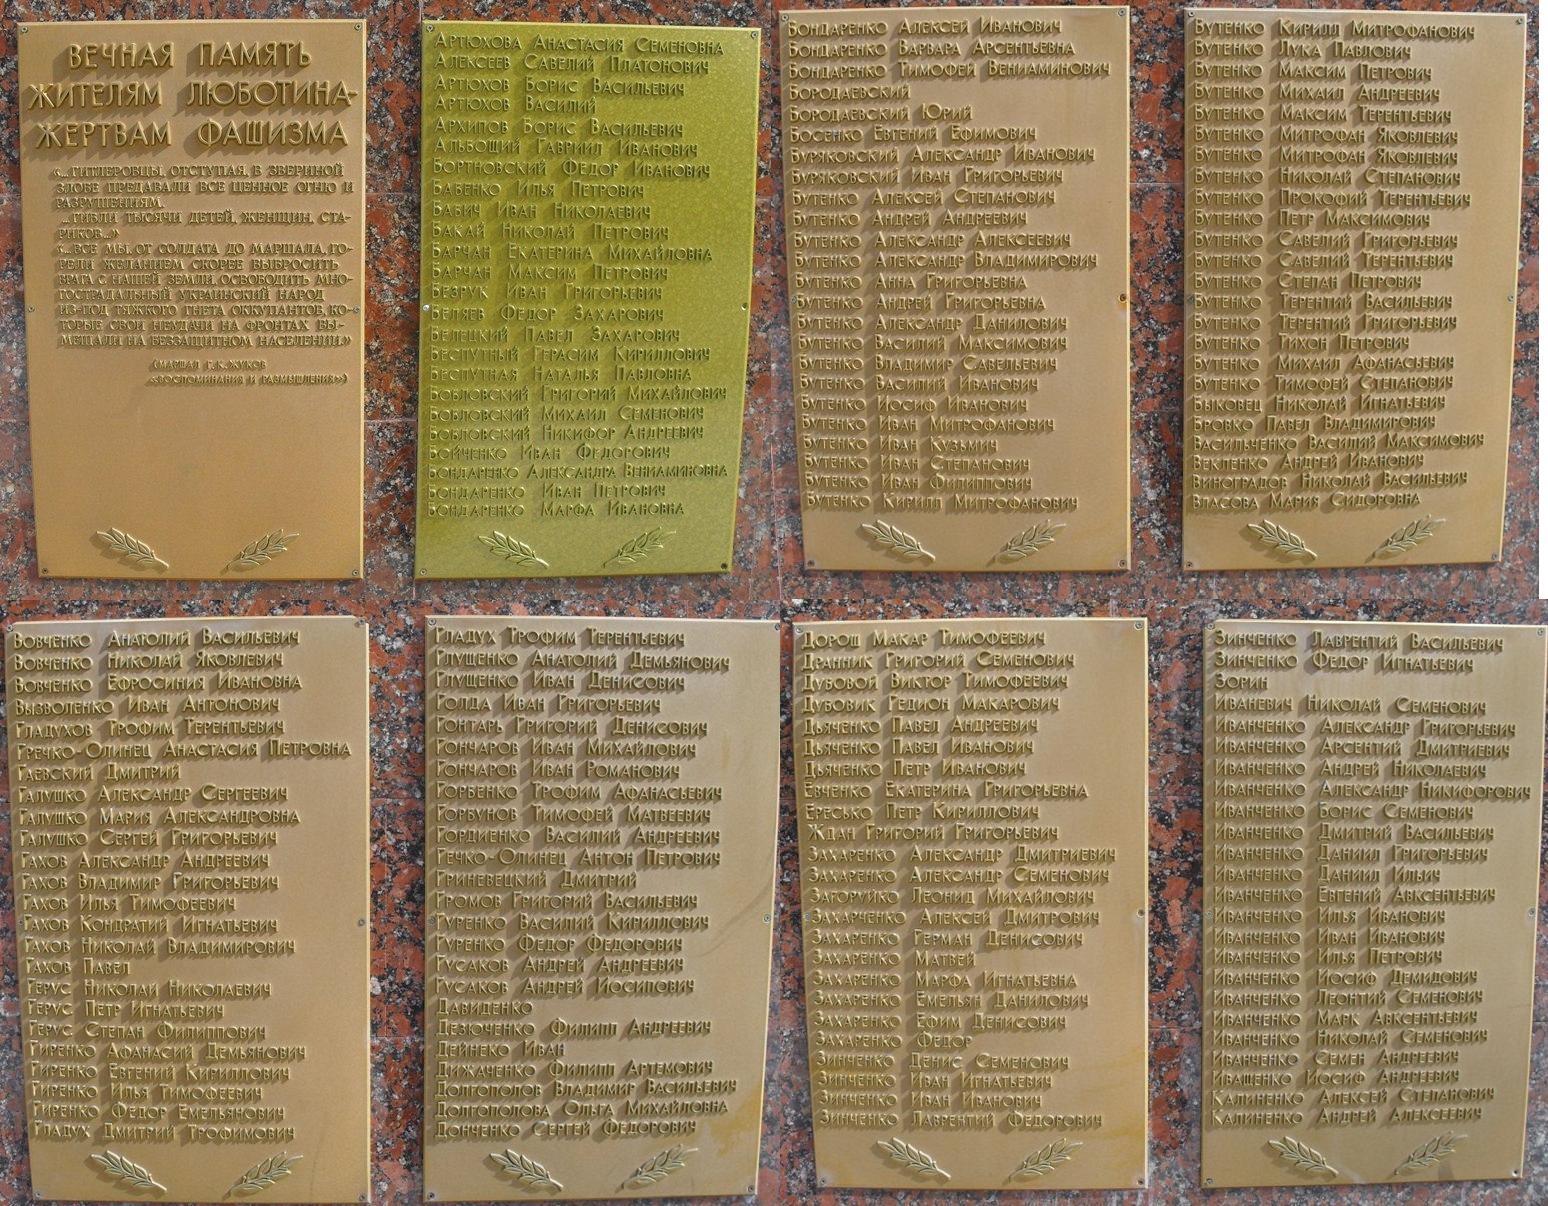 ВЕЧНАЯ ПАМЯТЬ
ЖИТЕЛЯМ ЛЮБОТИНА-
ЖЕРТВАМ ФАШИЗМА
«...ГИТЛЕРОВЦЫ, ОТСТУПАЯ, В ЗВЕРИНОЙ
ЗЛОБЕ ПРЕДАВАЛИ ВСЕ ЦЕННОЕ ОГНЮ И
РАЗРУШЕНИЯМ.
...ГИБЛИ ТЫСЯЧИ ДЕТЕЙ, ЖЕНЩИН, СТА-
РИКОВ...»
«...ВСЕ МЫ...ОТ СОЛДАТА ДО МАРШАЛА, ГО-
РЕЛИ ЖЕЛАНИЕМ СКОРЕЕ ВЫБРОСИТЬ
ВРАГА С НАШЕЙ ЗЕМЛИ, ОСВОБОДИТЬ МНО-
ГОСТРАДАЛЬНЫЙ УКРАИНСКИЙ НАРОД
ИЗ-ПОД ТЯЖКОГО ГНЕТА ОККУПАНТОВ, КО-
ТОРЫЕ СВОИ НЕУДАЧИ НА ФРОНТАХ ВЫ-
МЕЩАЛИ НА БЕЗЗАЩИТНОМ НАСЕЛЕНИИ.»
(МАРШАЛ Г.К.ЖУКОВ
«ВОСПОМИНАНИЯ И РАЗМЫШЛЕНИЯ»)
АРТЮХОВА АНАСТАСИЯ СЕМЕНОВНА
АЛЕКСЕЕВ САВЕЛИЙ ПЛАТОНОВИЧ
АРТЮХОВ БОРИС ВАСИЛЬЕВИЧ
АРТЮХОВ ВАСИЛИЙ
АРХИПОВ БОРИС ВАСИЛЬЕВИЧ
АЛЬБОЩИЙ ГАВРИИЛ ИВАНОВИЧ
БОРТНОВСКИЙ ФЕДОР ИВАНОВИЧ
БАБЕНКО ИЛЬЯ ПЕТРОВИЧ
БАБИЧ ИВАН НИКОЛАЕВИЧ
БАКАЙ НИКОЛАЙ ПЕТРОВИЧ
БАРЧАН ЕКАТЕРИНА МИХАЙЛОВНА
БАРЧАН МАКСИМ ПЕТРОВИЧ
БЕЗРУК ИВАН ГРИГОРЬЕВИЧ
БЕЛЯЕВ ФЕДОР ЗАХАРОВИЧ
БЕЛЕЦКИЙ ПАВЕЛ ЗАХАРОВИЧ
БЕСПУТНЫЙ ГЕРАСИМ КИРИЛЛОВИЧ
БЕСПУТНАЯ НАТАЛЬЯ ПАВЛОВНА
БОБЛОВСКИЙ ГРИГОРИЙ МИХАЙЛОВИЧ
БОБЛОВСКИЙ МИХАИЛ СЕМЕНОВИЧ
БОБЛОВСКИЙ НИКИФОР АНДРЕЕВИЧ
БОЙЧЕНКО ИВАН ФЕДОРОВИЧ
БОНДАРЕНКО АЛЕКСАНДРА ВЕНИАМИНОВНА
БОНДАРЕНКО ИВАН ПЕТРОВИЧ
БОНДАРЕНКО МАРФА ИВАНОВНА
БОНДАРЕНКО АЛЕКСЕЙ ИВАНОВИЧ
БОНДАРЕНКО ВАРВАРА АРСЕНТЬЕВНА
БОНДАРЕНКО ТИМОФЕЙ ВЕНИАМИНОВИЧ
БОРОДАЕВСКИЙ
БОРОДАЕВСКИЙ ЮРИЙ
БОСЕНКО ЕВГЕНИЙ ЕФИМОВИЧ
БУРЯКОВСКИЙ АЛЕКСАНДР ИВАНОВИЧ
БУРЯКОВСКИЙ ИВАН ГРИГОРЬЕВИЧ
БУТЕНКО АЛЕКСЕЙ СТЕПАНОВИЧ
БУТЕНКО АНДРЕЙ АНДРЕЕВИЧ
БУТЕНКО АЛЕКСАНДР АЛЕКСЕЕВИЧ
БУТЕНКО АЛЕКСАНДР ВЛАДИМИРОВИЧ
БУТЕНКО АННА ГРИГОРЬЕВНА
БУТЕНКО АНДРЕЙ ГРИГОРЬЕВНА
БУТЕНКО АЛЕКСАНДР ДАНИЛОВИЧ
БУТЕНКО ВАСИЛИЙ МАКСИМОВИЧ
БУТЕНКО ВЛАДИМИР САВЕЛЬЕВИЧ
БУТЕНКО ВАСИЛИЙ ИВАНОВИЧ
БУТЕНКО ИОСИФ ИВАНОВИЧ
БУТЕНКО ИВАН МИТРОФАНОВИЧ
БУТЕНКО ИВАН КУЗЬМИЧ
БУТЕНКО ИВАН СТЕПАНОВИЧ
БУТЕНКО ИВАН ФИЛИППОВИЧ
БУТЕНКО КИРИЛЛ МИТРОФАНОВИЧ
БУТЕНКО КИРИЛЛ МИТРОФАНОВИЧ
БУТЕНКО ЛУКА ПАВЛОВИЧ
БУТЕНКО МАКСИМ ПЕТРОВИЧ
БУТЕНКО МИХАИЛ АНДРЕЕВИЧ
БУТЕНКО МАКСИМ ТЕРЕНТЬЕВИЧ
БУТЕНКО МИТРОФАН ЯКОВЛЕВИЧ
БУТЕНКО МИТРОФАН ЯКОВЛЕВИЧ
БУТЕНКО НИКОЛАЙ СТЕПАНОВИЧ
БУТЕНКО ПРОКОФИЙ ТЕРЕНТЬЕВИЧ
БУТЕНКО ПЕТР МАКСИМОВИЧ
БУТЕНКО САВЕЛИЙ ГРИГОРЬЕВИЧ
БУТЕНКО САВЕЛИЙ ТЕРЕНТЬЕВИЧ
БУТЕНКО СТЕПАН ПЕТРОВИЧ
БУТЕНКО ТЕРЕНТИЙ ВАСИЛЬЕВИЧ
БУТЕНКО ТЕРЕНТИЙ ГРИГОРЬЕВИЧ
БУТЕНКО ТИХОН ПЕТРОВИЧ
БУТЕНКО МИХАИЛ АФАНАСЬЕВИЧ
БУТЕНКО ТИМОФЕЙ СТЕПАНОВИЧ
БЫКОВЕЦ НИКОЛАЙ ИГНАТЬЕВИЧ
БРОВКО ПАВЕЛ ВЛАДИМИРОВИЧ
ВАСИЛЬЧЕНКО ВАСИЛИЙ МАКСИМОВИЧ
ВЕКЛЕНКО АНДРЕЙ ИВАНОВИЧ
ВИНОГРАДОВ НИКОЛАЙ ВАСИЛЬЕВИЧ
ВЛАСОВА МАРИЯ СИДОРОВНА
ВОВЧЕНКО АНАТОЛИЙ ВАСИЛЬЕВИЧ
ВОВЧЕНКО НИКОЛАЙ ЯКОВЛЕВИЧ
ВОВЧЕНКО ЕФРОСИНИЯ ИВАНОВНА
ВЫЗВОЛЕНКО ИВАН АНТОНОВИЧ
ГЛАДУХОВ ТРОФИМ ТЕРЕНТЬЕВИЧ
ГРЕЧКО-ОЛИНЕЦ АНАСТАСИЯ ПЕТРОВНА
ГАЕВСКИЙ ДМИТРИЙ
ГАЛУШКО АЛЕКСАНДР СЕРГЕЕВИЧ
ГАЛУШКО МАРИЯ АЛЕКСАНДРОВНА
ГАЛУШКО СЕРГЕЙ ГРИГОРЬЕВИЧ
ГАХОВ АЛЕКСАНДР АНДРЕЕВИЧ
ГАХОВ ВЛАДИМИР ГРИГОРЬЕВИЧ
ГАХОВ ИЛЬЯ ТИМОФЕЕВИЧ
ГАХОВ КОНДРАТИЙ ИГНАТЬЕВИЧ
ГАХОВ НИКОЛАЙ ВЛАДИМИРОВИЧ
ГАХОВ ПАВЕЛ
ГЕРУС НИКОЛАЙ НИКОЛАЕВИЧ
ГЕРУС ПЕТР ИГНАТЬЕВИЧ
ГЕРУС СТЕПАН ФИЛИППОВИЧ
ГИРЕНКО АФАНАСИЙ ДЕМЬЯНОВИЧ
ГИРЕНКО ЕВГЕНИЙ КИРИЛЛОВИЧ
ГИРЕНКО ИЛЬЯ ТИМОФЕЕВИЧ
ГИРЕНКО ФЕДОР ЕМЕЛЬЯНОВИЧ
ГЛАДУХ ДМИТРИЙ ТРОФИМОВИЧ
ГЛАДУХ ТРОФИМ ТЕРЕНТЬЕВИЧ
ГЛУЩЕНКО АНАТОЛИЙ ДЕМЬЯНОВИЧ
ГЛУЩЕНКО ИВАН ДЕНИСОВИЧ
ГОЛДА ИВАН ГРИГОРЬЕВИЧ
ГОНТАРЬ ГРИГОРИЙ ДЕНИСОВИЧ
ГОНЧАРОВ ИВАН МИХАЙЛОВИЧ
ГОНЧАРОВ ИВАН РОМАНОВИЧ
ГОРБЕНКО ТРОФИМ АФАНАСЬЕВИЧ
ГОРБУНОВ ТИМОФЕЙ МАТВЕЕВИЧ
ГОРДИЕНКО ВАСИЛИЙ АНДРЕЕВИЧ
ГЕЧКО-ОЛИНЕЦ АНТОН ПЕТРОВИЧ
ГРИНЕВЕЦКИЙ ДМИТРИЙ
ГРОМОВ ГРИГОРИЙ ВАСИЛЬЕВИЧ
ГУРЕНКО ВАСИЛИЙ КИРИЛЛОВИЧ
ГУРЕНКО ФЕДОР ФЕДОРОВИЧ
ГУСАКОВ АНДРЕЙ АНДРЕЕВИЧ
ГУСАКОВ АНДРЕЙ ИОСИПОВИЧ
ДАВИДЕНКО
ДЕЗЮЧЕНКО ФИЛИПП АНДРЕЕВИЧ
ДЕЙНЕКО ИВАН
ДИЖАЧЕНКО ФИЛИПП АРТЕМОВИЧ
ДОЛГОПОЛОВ ВЛАДИМИР ВАСИЛЬЕВИЧ
ДОЛГОПОЛОВА ОЛЬГА МИХАЙЛОВНА
ДОНЧЕНКО СЕРГЕЙ ФЕДОРОВИЧ
ДОРОШ МАКАР ТИМОФЕЕВИЧ
ДРАННИК ГРИГОРИЙ СЕМЕНОВИЧ
ДУБОВОЙ ВИКТОР ТИМОФЕЕВИЧ
ДУБОВИК ГЕДИОН МАКАРОВИЧ
ДЬЯЧЕНКО ПАВЕЛ АНДРЕЕВИЧ
ДЬЯЧЕНКО ПАВЕЛ ИВАНОВИЧ
ДЬЯЧЕНКО ПЕТР ИВАНОВИЧ
ЕВЧЕНКО ЕКАТЕРИНА ГРИГОРЬЕВНА
ЕРЕСЬКО ПЕТР КИРИЛЛОВИЧ
ЖДАН ГРИГОРИЙ ГРИГОРЬЕВИЧ
ЗАХАРЕНКО АЛЕКСАНДР ДМИТРИЕВИЧ
ЗАХАРЕНКО АЛЕКСАНДР СЕМЕНОВИЧ
ЗАГОРУЙКО ЛЕОНИД МИХАЙЛОВИЧ
ЗАХАРЧЕНКО АЛЕКСЕЙ ДМИТРОВИЧ
ЗАХАРЕНКО ГЕРМАН ДЕНИСОВИЧ
ЗАХАРЕНКО МАТВЕЙ
ЗАХАРЕНКО МАРФА ИГНАТЬЕВНА
ЗАХАРЕНКО ЕМЕЛЬЯН ДАНИЛОВИЧ
ЗАХАРЕНКО ЕФИМ ДЕНИСОВИЧ
ЗАХАРЕНКО ФЕДОР
ЗИНЧЕНКО ДЕНИС СЕМЕНОВИЧ
ЗИНЧЕНКО ИВАН ИГНАТЬЕВИЧ
ЗИНЧЕНКО ИВАН ИВАНОВИЧ
ЗИНЧЕНКО ЛАВРЕНТИЙ ФЕДОРОВИЧ
ЗИНЧЕНКО ЛАВРЕНТИЙ ВАСИЛЬЕВИЧ
ЗИНЧЕНКО ФЕДОР ИГНАТЬЕВИЧ
ЗОРИН
ИВАНЕВИЧ НИКОЛАЙ СЕМЕНОВИЧ
ИВАНЧЕНКО АЛЕКСАНДР ГРИГОРЬЕВИЧ
ИВАНЧЕНКО АРСЕНТИЙ ДМИТРИЕВИЧ
ИВАНЧЕНКО АНДРЕЙ НИКОЛАЕВИЧ
ИВАНЧЕНКО АЛЕКСАНДР НИКИФОРОВИЧ
ИВАНЧЕНКО БОРИС СЕМЕНОВИЧ
ИВАНЧЕНКО ДМИТРИЙ ВАСИЛЬЕВИЧ
ИВАНЧЕНКО ДАНИИЛ ГРИГОРЬЕВИЧ
ИВАНЧЕНКО ДАНИИЛ ИЛЬИЧ
ИВАНЧЕНКО ЕВГЕНИЙ АВКСЕНТЬЕВИЧ
ИВАНЧЕНКО ИЛЬЯ ИВАНОВИЧ
ИВАНЧЕНКО ИВАН ИВАНОВИЧ
ИВАНЧЕНКО ИЛЬЯ ПЕТРОВИЧ
ИВАНЧЕНКО ИОСИФ ДЕМИДОВИЧ
ИВАНЧЕНКО ЛЕОНТИЙ СЕМЕНОВИЧ
ИВАНЧЕНКО МАРК АВКСЕНТЬЕВИЧ
ИВАНЧЕНКО НИКОЛАЙ СЕМЕНОВИЧ
ИВАНЧЕНКО СЕМЕН АНДРЕЕВИЧ
ИВАЩЕНКО ИОСИФ АНДРЕЕВИЧ
КАЛИНЕНКО АЛЕКСЕЙ СТЕПАНОВИЧ
КАЛИНЕНКО АНДРЕЙ АЛЕКСЕЕВИЧ